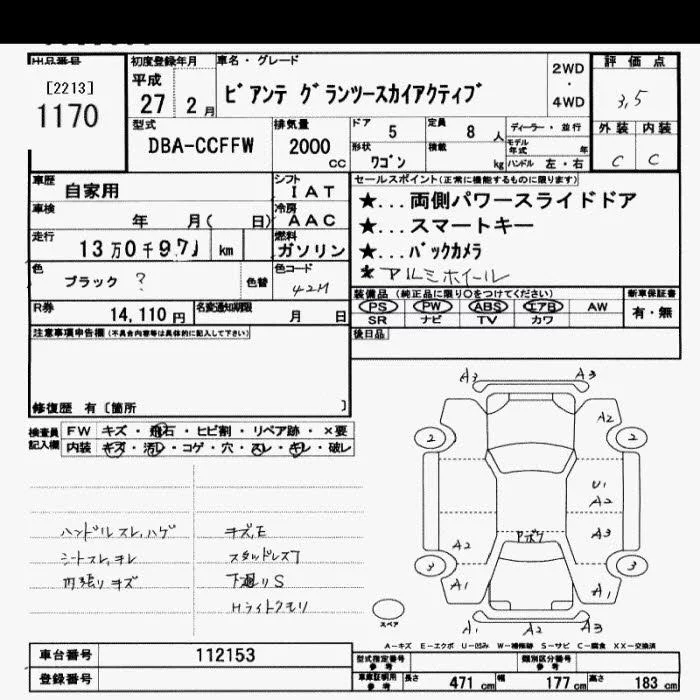 出品番号
[2213]
1170
初度登録年月
平成
27 2月
車名・グレード
ビアンテ グランツースカイアクティブ
2WD
・
4WD
評価点
3,5
外装 内装
C C
型式
DBA-CCFFW
排気量
2000
CC
ドア 5
定員 8人
形状
ワゴン
積載 kg
ディーラー・並行
モデル
年式 年
ハンドル 左・右
車歴
自家用
シフト
IAT
車検
年 月( 日)
冷房
AAC
走行
13万0千97 km
燃料
ガソリン
色
ブラック ?
色替
色コード
42M
R券
14,110円
名変通知期限
月 日
セールスポイント(正常に機能するものに限ります)
★...両側パワースライドドア
★...スマートキー
★...バックカメラ
★ アルミホイール
装備品(純正品に限り○をつけてください)
PS PW ABS エアB AW
SR ナビ TV カワ
新車保証書
有・無
後日品
注意事項申告欄(不具合内容等は具体的に記入して下さい)
修復歴 有〔箇所 〕
検査員
記入欄
FW キズ・飛石・ヒビ割・リペア跡・×要
内装 キズ・汚レ・コゲ・穴・スレ・キレ・破レ
ハンドルスレ,ハゲ
シートスレ,キレ
内張リキズ
キズ,E
スタッドレス7
下廻りS
Hライトクモリ
A3 A3
A2
2 2
U1
A2
A3
Pガラ
A2
3 3
A1 A1
A1 A2 A3
スペア
A-キズ E-エクボ U-凹み W-補修跡 S-サビ C-腐食 XX-交換済
車台番号 112153
登録番号
型式指定番号
参考
類別区分番号
参考
車庫証明用
参考
長さ 471cm 幅 177cm 高さ 183cm